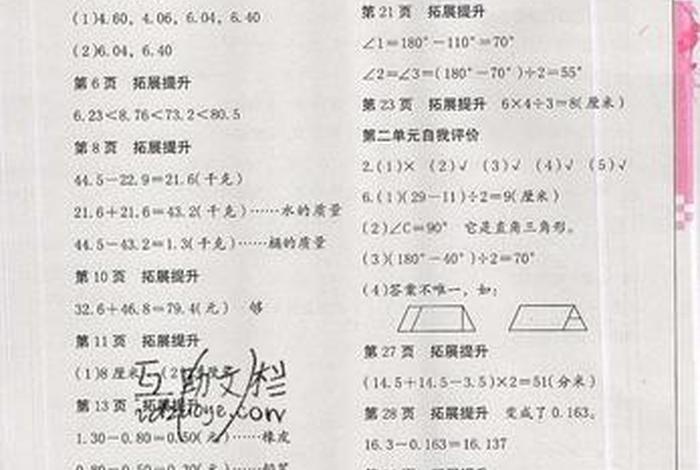 (1)4.60, 4.06, 6.04, 6.40
(2)6.04, 6.40
第6页 拓展提升
6.23<8.76<73.2<80.5
第8页 拓展提升
44.5-22.9=21.6(千克)
21.6+21.6=43.2(千克)……水的质量
44.5-43.2=1.3(千克)……桶的质量
第10页 拓展提升
32.6+46.8=79.4(元) 够
第11页 拓展提升
(1)8厘米 (2)
互助文栏
第13页 拓展提升
1.30-0.80=0.50(元)……橡皮
0.80-0.50=0.30(元)……铅笔
第21页 拓展提升
∠1=180°-110°=70°
∠2=∠3=(180°-70°)÷2=55°
第23页 拓展提升 6×4÷3=8(厘米)
第二单元自我评价
2.(1)× (2)√ (3)√ (4)√ (5)√
6.(1)(29-11)÷2=9(厘米)
(2)∠C=90° 它是直角三角形。
(3)(180°-40°)÷2=70°
(4)答案不唯一，如：
第27页 拓展提升
(14.5+14.5-3.5)×2=51(分米)
第28页 拓展提升 变成了0.163。
16.3-0.163=16.137